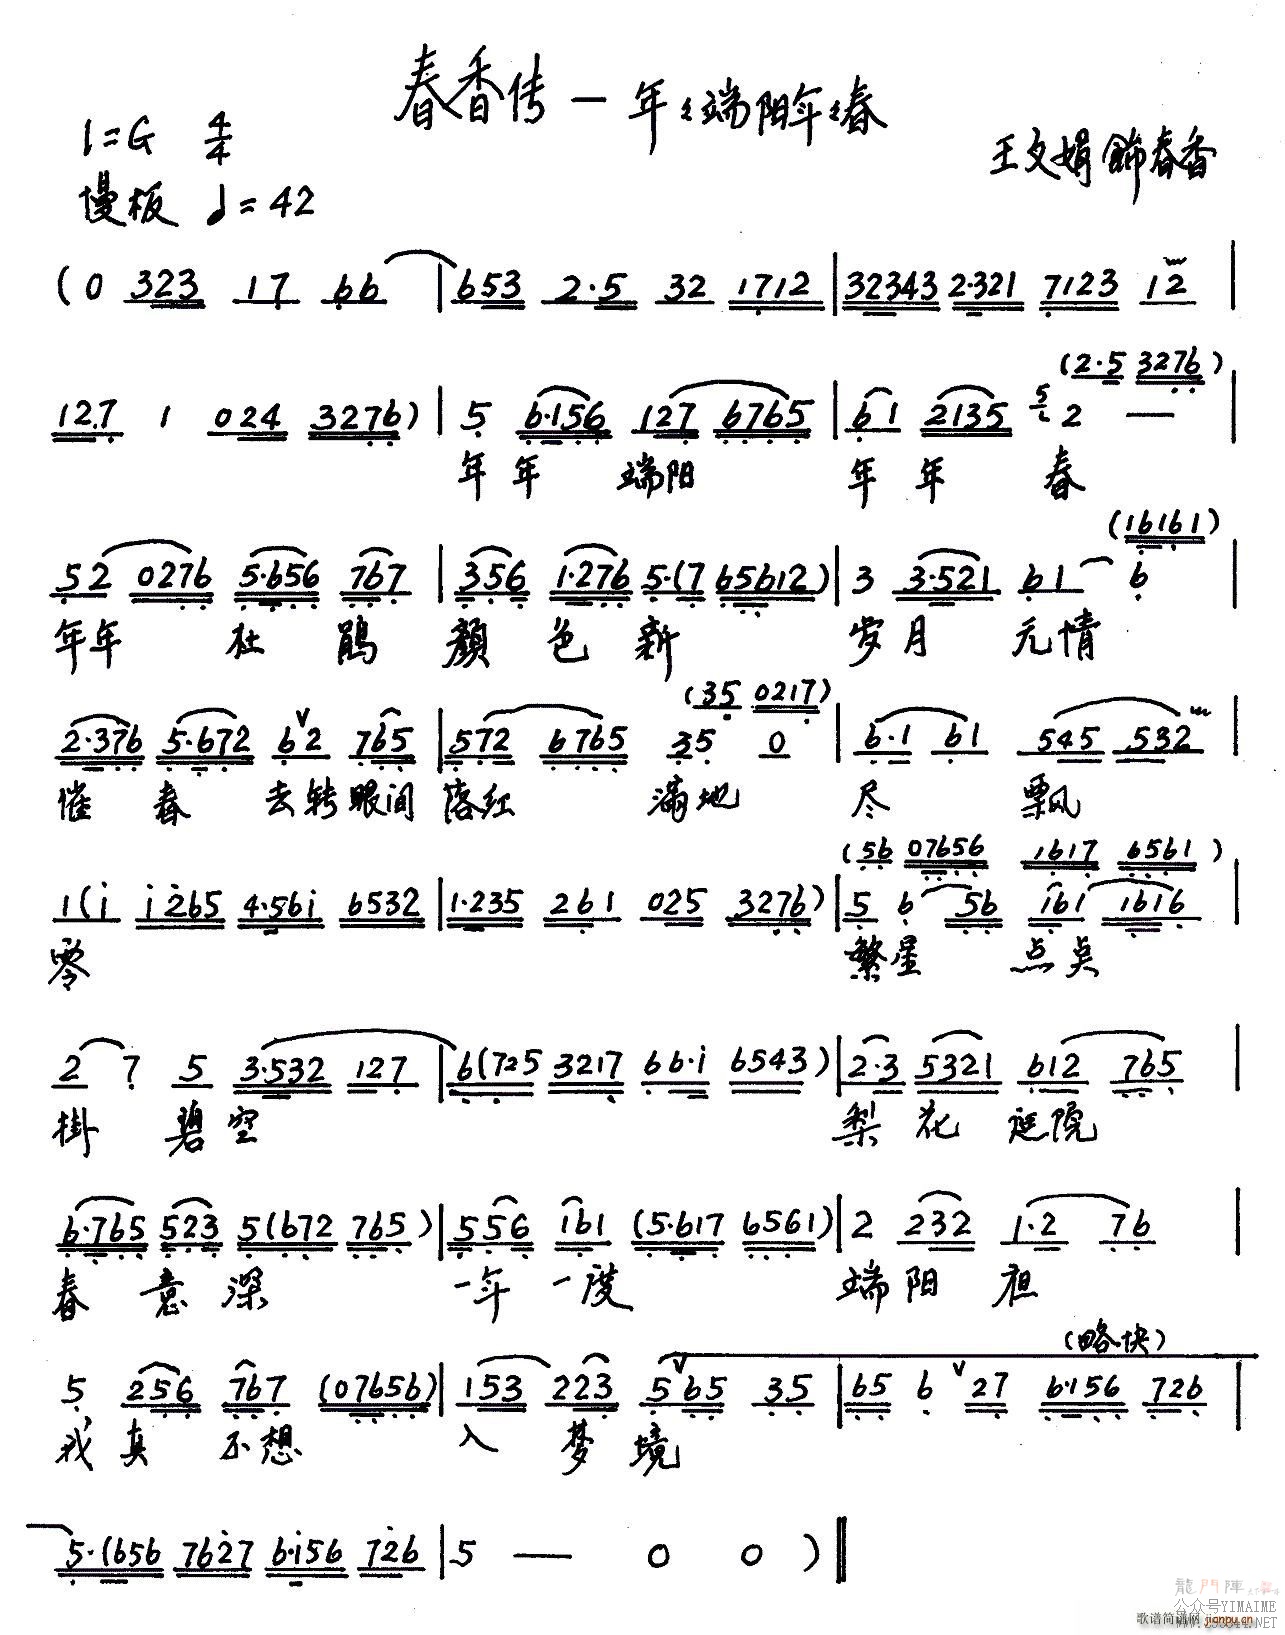 春香传—年々端阳年々春
1=G 4/4
王文娟 饰春香
慢板 ♩=42
(0 323 17 66 | 653 2·5 32 1712 | 32343 2·321 7123 12 |
(2·5 3276)
127 1 024 3276) | 5 6·156 127 6765 | 61 2135 2 — |
年年 端阳 年年 春
(16161)
52 0276 5·656 767 | 356 1·276 5·(7 65612) 3 3·521 61 6 |
年年 杜鹃 颜色新 岁月无情
(35 0217)
2·376 5·672 62 765 | 572 6765 35 0 | 6·1 61 545 532 |
催春去转眼间 落红 满地 尽 飘
(56 07656 1617 6561)
1(i i265 4·56i 6532 | 1·235 261 025 3276) 5 6 56 161 1616 |
零 繁星 点点
2 7 5 3·532 127 | 6(725 3217 66·i 6543) | 2·3 5321 612 765 |
掛 碧空 梨花 庭院
6·765 523 5(672 765) | 556 161 (5·617 6561) | 2 232 1·2 76 |
春意深 一年一度 端阳
(略快)
5 256 767 (07656) | 153 223 5 65 35 | 65 6 27 6·156 726 |
我真 不想 入梦境
5·(656 7627 6·i56 726 | 5 — 0 0 )‖
龍門陣
公众号YIMAIME
歌谱简谱网 jianpu.cn